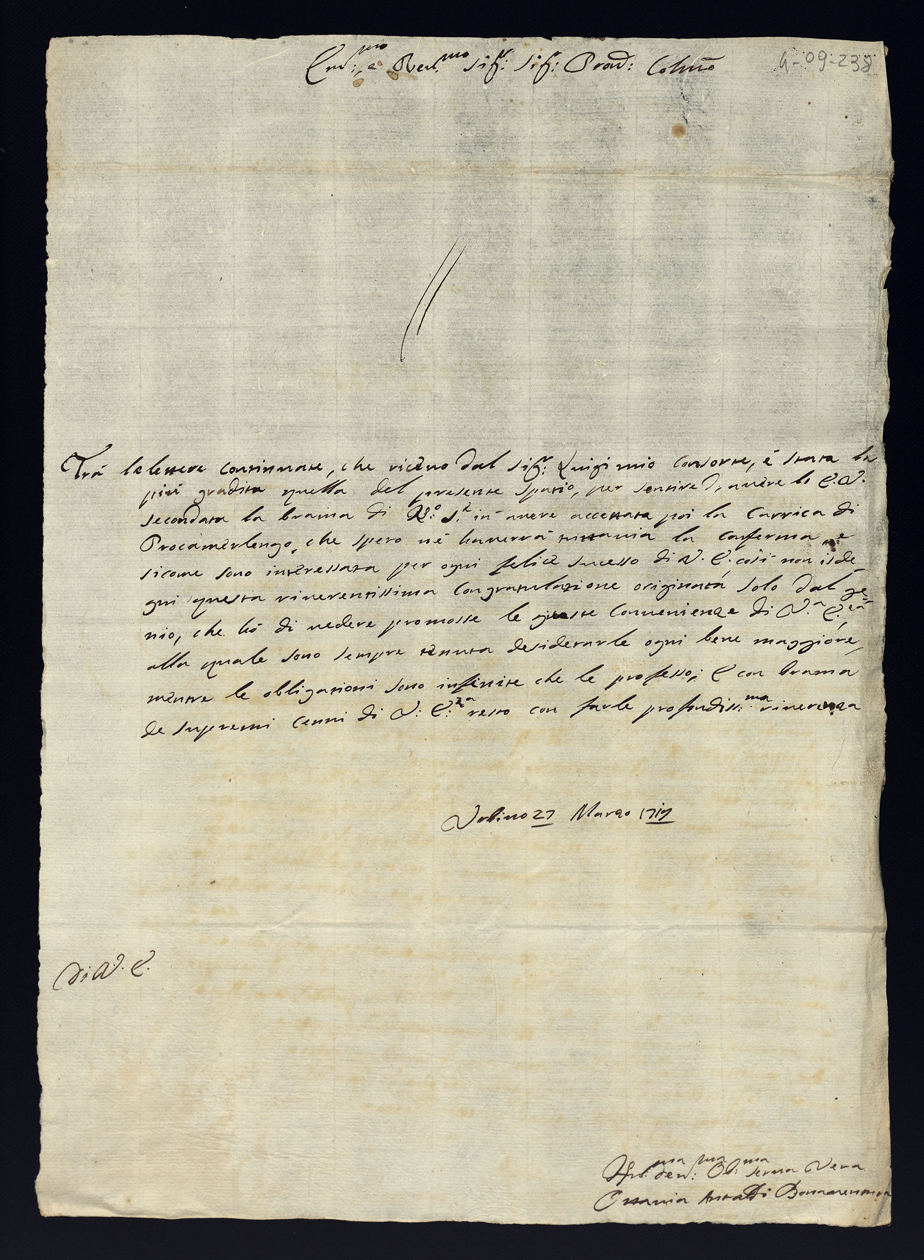 Em:mo e Rev:mo Sig:r Sig:r Pron: Colmo
G-09-238
Trà le lettere continuate, che riceuo dal Sig:r Luigi mio Consorte, è stata la
più gradita quella del presente Spatio, per sentire d'auere l' E.V.
secondata la brama di N:o S.re in auere accettata poi la Carrica di
Procamerlengo, che spero nè hauerrà tuttauia la Conferma, e
sicome sono interessata per ogni felice sucesso di V. E. così non isde
gni questa riuerentissima Congratulazione originata solo dal ge
nio, che hò di uedere promosse le giuste Conuenienze di V.a E.za
alla quale sono sempre tenuta desiderarle ogni bene maggiore,
mentre le obligationi sono infinite che le professo; E con brama
de supremi Cenni di V: E:za resto con farle profondiss:ma riuerenza
Vrbino 27 Marzo 1717
Di V. E.
deu:ma Ob:ma Serua Vera
Ottauia Antaldi Bonauentura